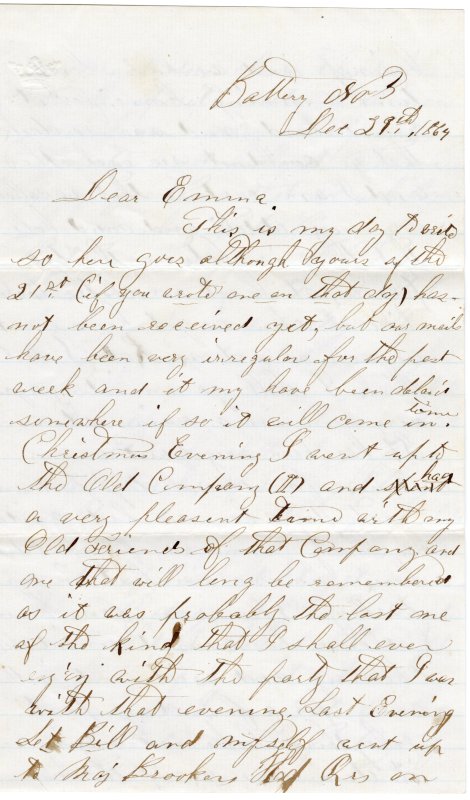 Battery No 3
Dec 29th, 1864
Dear Emma.
This is my day to write
so here goes although yours of the
21st (if you wrote one on that dy) has
not been received yet, but our mails
have been very irregular for the past
week and it my have been
somewhere if so it will come in time.
Christmas Evening I went up to
the Old Company (H) and had
a very pleasant time with my
Old Friends of that Company and
one that will long be remembered
as it was probably the last one
of the kind that I shall ever
enjoy with the party that I was
with that evening. Last Evening
Let Bill and myself went up
to Maj Brookers Hd Qrs on